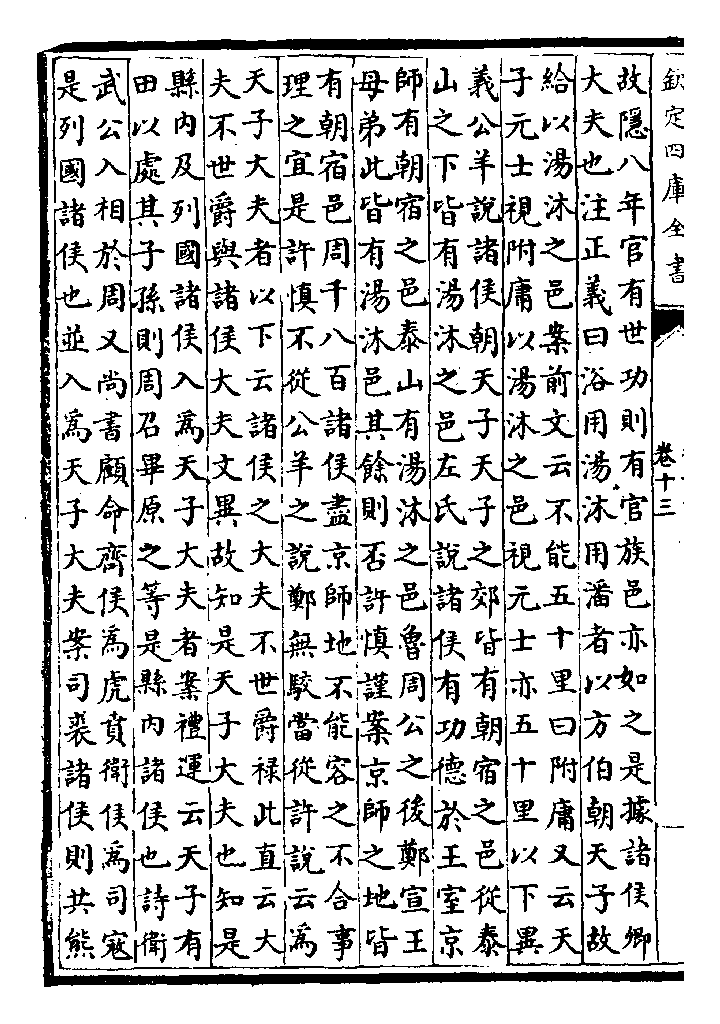 欽定四庫全書
卷十三
故隱八年官有世功則有官族邑亦如之是據諸侯卿
大夫也注正義曰浴用湯沐用潘者以方伯朝天子故
給以湯沐之邑案前文云不能五十里曰附庸又云天
子元士視附庸以湯沐之邑視元士亦五十里以下異
義公羊說諸侯朝天子天子之郊皆有朝宿之邑從泰
山之下皆有湯沐之邑左氏說諸侯有功德於王室京
師有朝宿之邑泰山有湯沐之邑魯周公之後鄭宣王
母弟此皆有湯沐邑其餘則否許慎謹案京師之地皆
有朝宿邑周千八百諸侯盡京師地不能容之不合事
理之宜是許慎不從公羊之說鄭無駁當從許說云爲
天子大夫者以下云諸侯之大夫不世爵祿此直云大
夫不世爵與諸侯大夫文異故知是天子大夫也知是
縣內及列國諸侯入爲天子大夫者案禮運云天子有
田以處其子孫則周召畢原之等是縣內諸侯也詩衛
武公入相於周又尚書顧命齊侯爲虎賁衛侯爲司寇
是列國諸侯也並入爲天子大夫案司裘諸侯則共熊